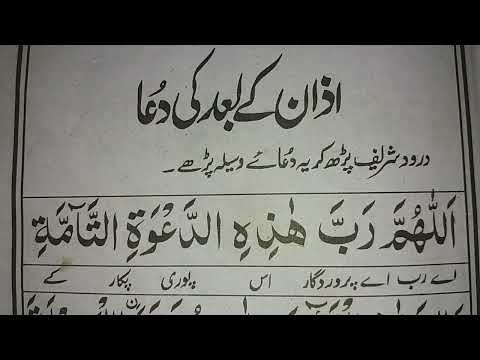 اذان کے بعد کی دُعا
درود شریف پڑھ کر یہ دُعائے وسیلہ پڑھے ۔
اَللّٰهُمَّ رَبَّ هٰذِهِ الدَّعْوَةِ التَّآمَّةِ
اے رب اے پروردگار اس پوری پکار کے